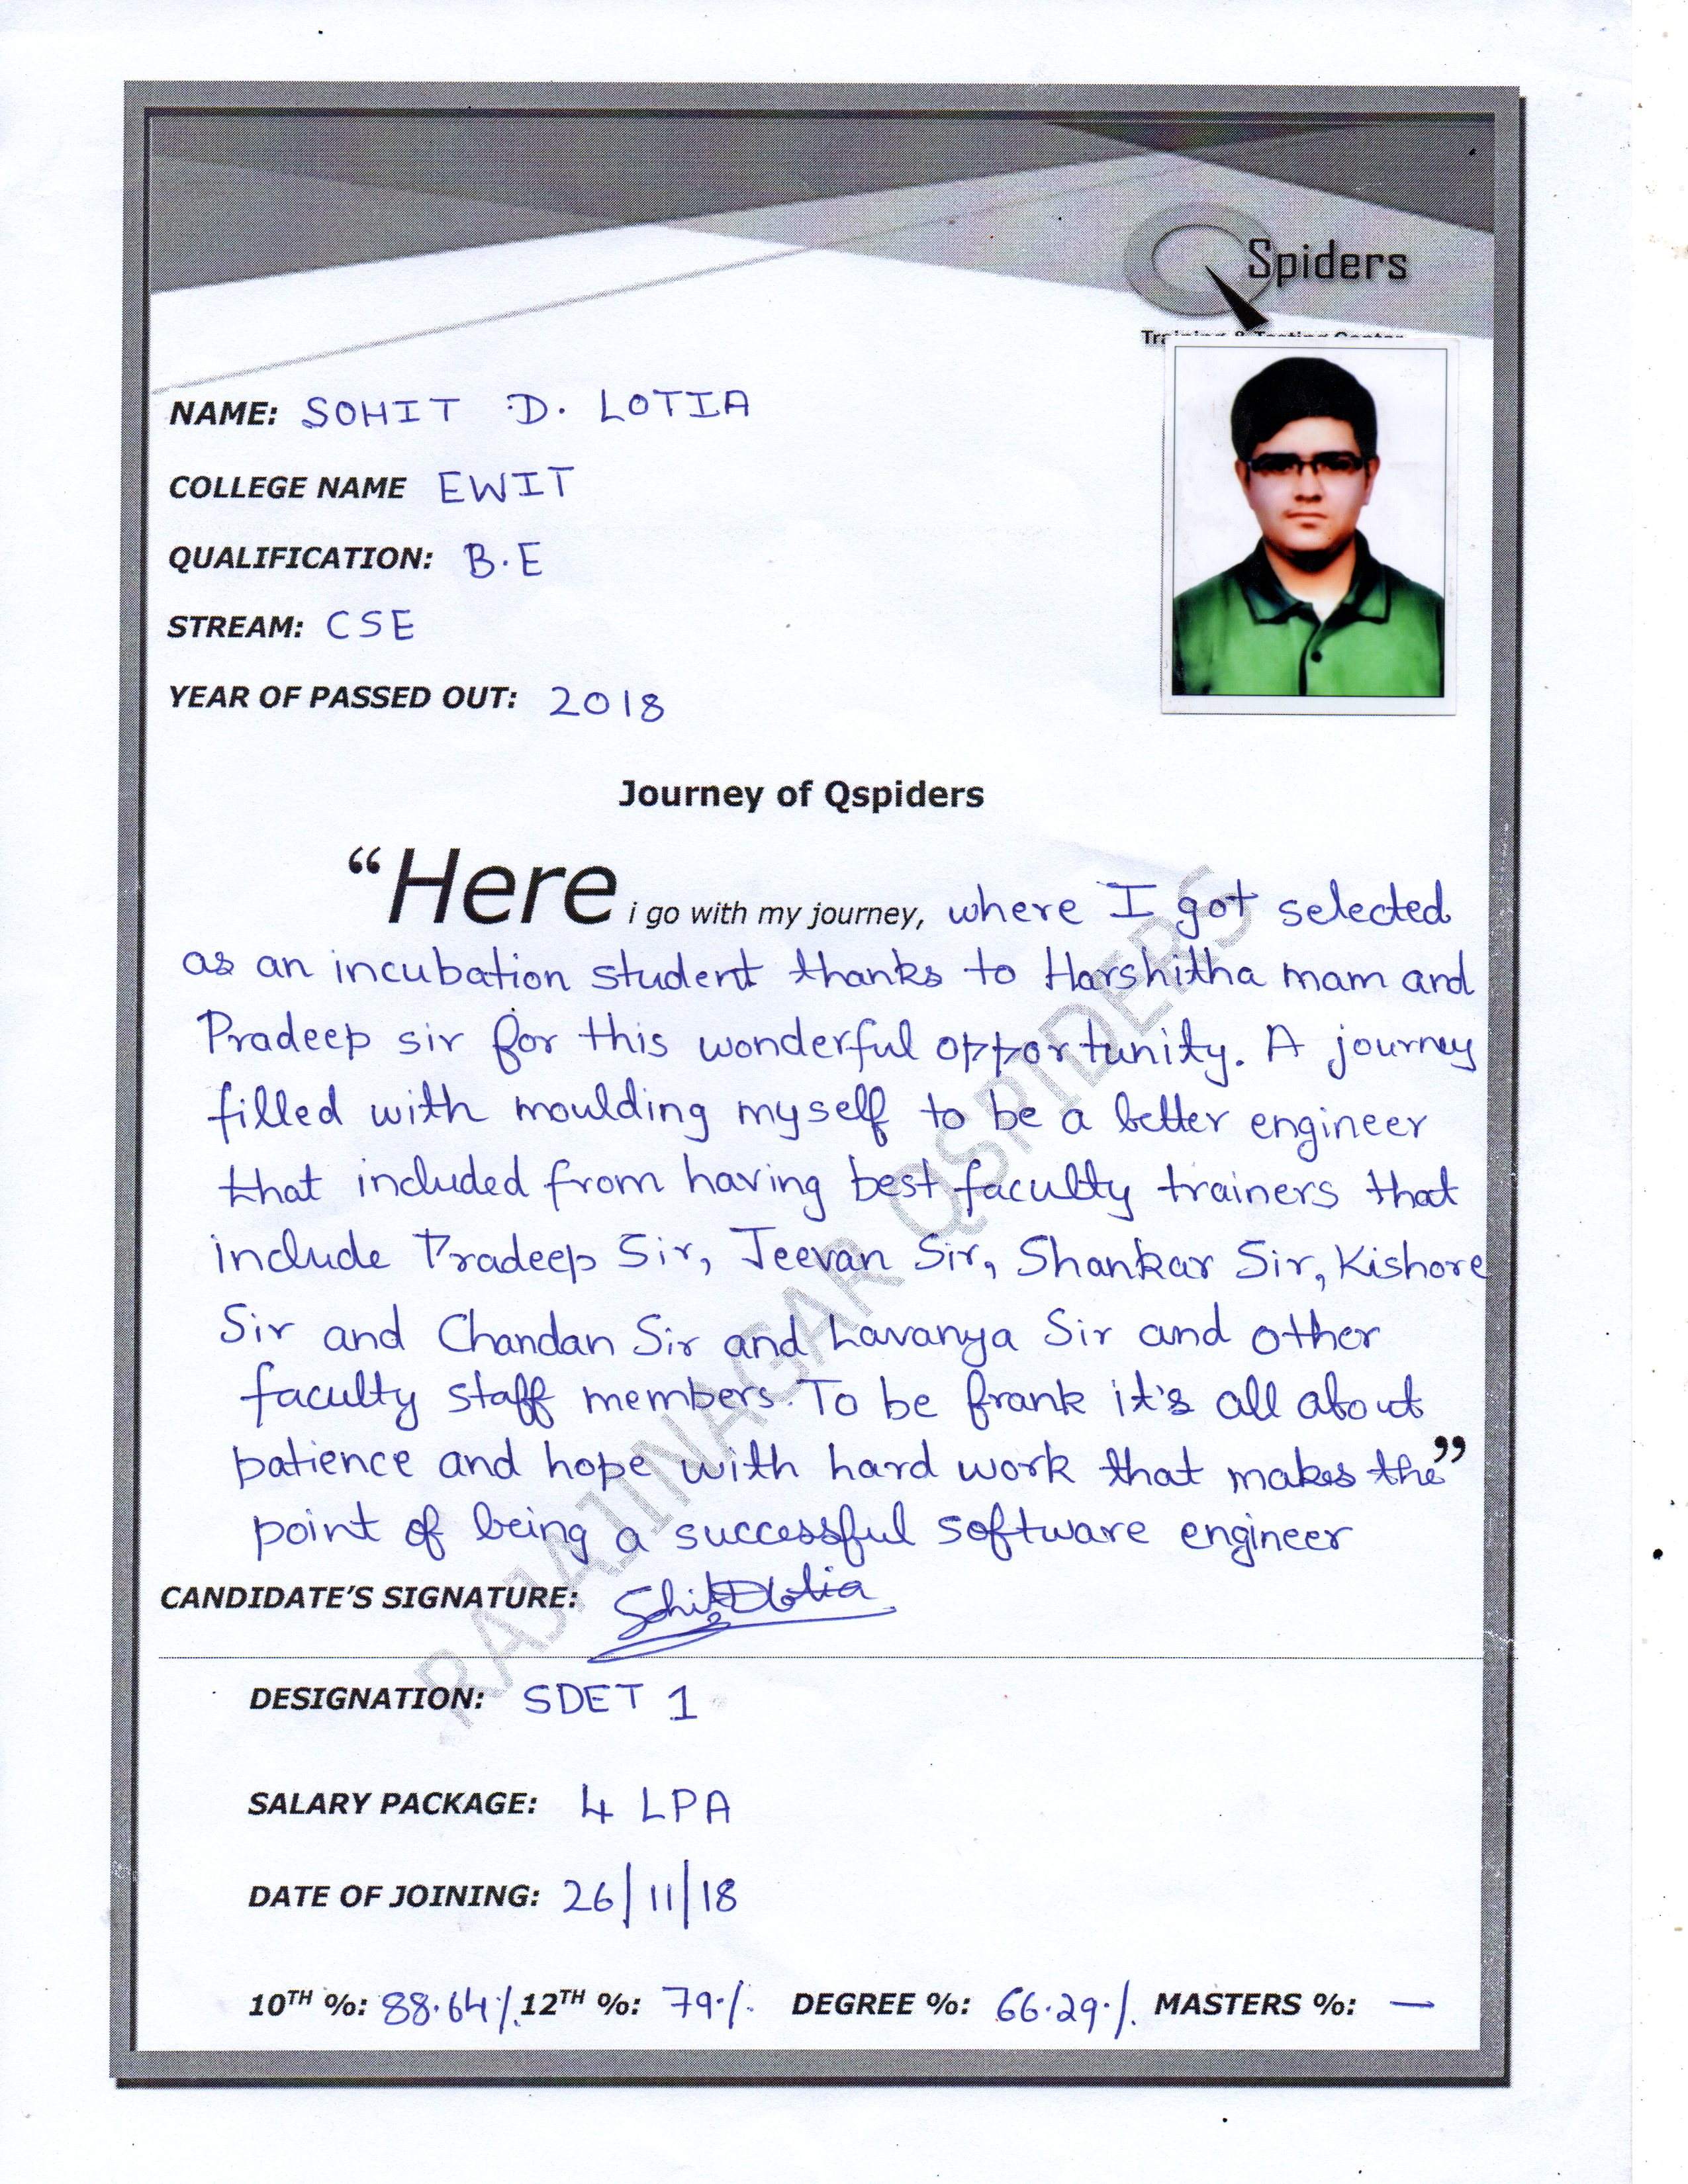 QSpiders
NAME: SOHIT D. LOTIA
COLLEGE NAME EWIT
QUALIFICATION: B.E
STREAM: CSE
YEAR OF PASSED OUT: 2018
Journey of Qspiders
“Here i go with my journey, where I got selected
as an incubation student thanks to Harshitha mam and
Pradeep sir for this wonderful opportunity. A journey
filled with moulding myself to be a better engineer
that included from having best faculty trainers that
include Pradeep Sir, Jeevan Sir, Shankar Sir, Kishore
Sir and Chandan Sir and Lavanya Sir and other
faculty staff members. To be frank it's all about
patience and hope with hard work that makes the”
point of being a successful software engineer
CANDIDATE’S SIGNATURE: Sohit D Lotia
DESIGNATION: SDET 1
SALARY PACKAGE: 4 LPA
DATE OF JOINING: 26/11/18
10TH %: 88.64% 12TH %: 79% DEGREE %: 66.29% MASTERS %: —
RAJAJINAGAR QSPIDERS